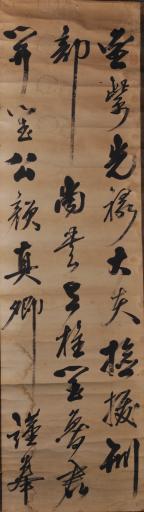 金紫光祿大夫檢挍刑
部尚書上柱國魯郡
開國公顏真卿謹奉